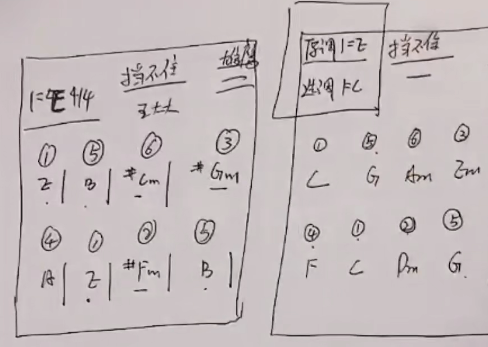 挡不住
1=E 4/4
① ⑤ ⑥ ③
E | B | #Cm | #Gm
④ ① ② ⑤
A | E | #Fm | B |
原调1=E 挡不住
选调1=C
① ⑤ ⑥ ③
C G Am Em
④ ① ② ⑤
F C Dm G